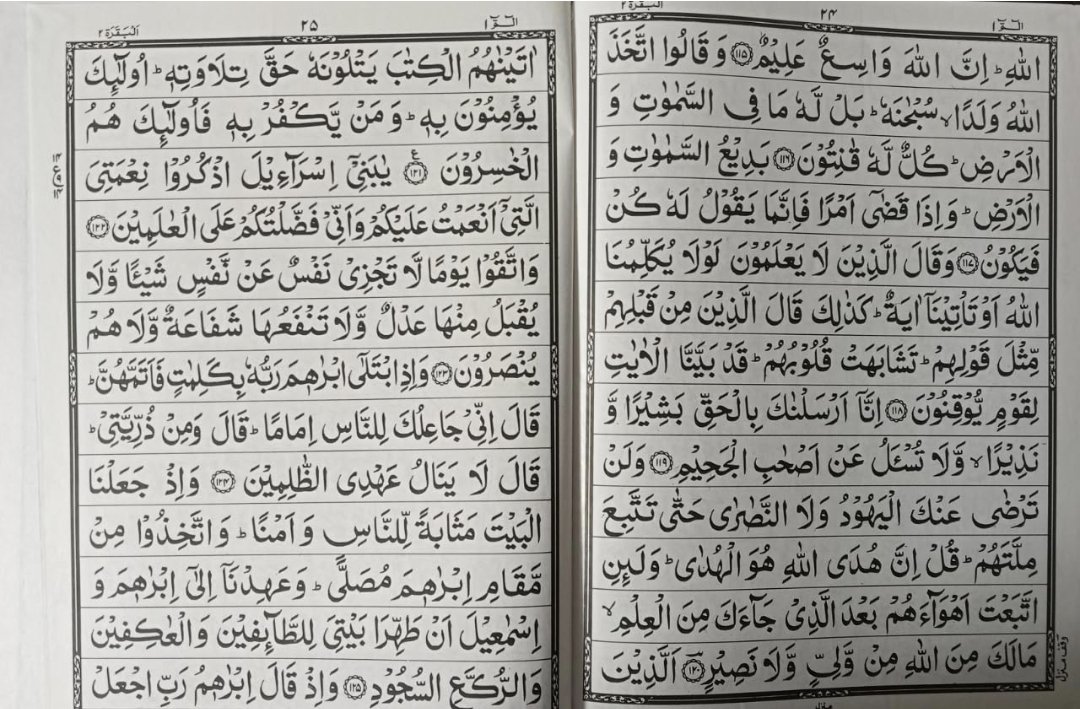 الٓمّٓ ١
٢٤
البقرة ٢
اللّٰهِ ؕ اِنَّ اللّٰهَ وَاسِعٌ عَلِيْمٌ ﴿۱۱۵﴾ وَ قَالُوا اتَّخَذَ
اللّٰهُ وَلَدًا ۙ سُبْحٰنَهٗ ؕ بَلْ لَّهٗ مَا فِى السَّمٰوٰتِ وَ
الْاَرْضِ ؕ كُلٌّ لَّهٗ قٰنِتُوْنَ ﴿۱۱۶﴾ بَدِيْعُ السَّمٰوٰتِ وَ
الْاَرْضِ ؕ وَاِذَا قَضٰٓى اَمْرًا فَاِنَّمَا يَقُوْلُ لَهٗ كُنْ
فَيَكُوْنُ ﴿۱۱۷﴾ وَقَالَ الَّذِيْنَ لَا يَعْلَمُوْنَ لَوْلَا يُكَلِّمُنَا
اللّٰهُ اَوْ تَاْتِيْنَآ اٰيَةٌ ؕ كَذٰلِكَ قَالَ الَّذِيْنَ مِنْ قَبْلِهِمْ
مِّثْلَ قَوْلِهِمْ ؕ تَشَابَهَتْ قُلُوْبُهُمْ ؕ قَدْ بَيَّنَّا الْاٰيٰتِ
لِقَوْمٍ يُّوْقِنُوْنَ ﴿۱۱۸﴾ اِنَّآ اَرْسَلْنٰكَ بِالْحَقِّ بَشِيْرًا وَّ
نَذِيْرًا ۙ وَّلَا تُسْـَٔلُ عَنْ اَصْحٰبِ الْجَحِيْمِ ﴿۱۱۹﴾ وَلَنْ
تَرْضٰى عَنْكَ الْيَهُوْدُ وَلَا النَّصٰرٰى حَتّٰى تَتَّبِعَ
مِلَّتَهُمْ ؕ قُلْ اِنَّ هُدَى اللّٰهِ هُوَ الْهُدٰى ؕ وَلَئِنِ
اتَّبَعْتَ اَهْوَآءَهُمْ بَعْدَ الَّذِىْ جَآءَكَ مِنَ الْعِلْمِ ۙ
مَالَكَ مِنَ اللّٰهِ مِنْ وَّلِىٍّ وَّلَا نَصِيْرٍ ﴿۱۲۰﴾ اَلَّذِيْنَ
وقف منزل
الٓمّٓ ١
٢٥
البقرة ٢
اٰتَيْنٰهُمُ الْكِتٰبَ يَتْلُوْنَهٗ حَقَّ تِلَاوَتِهٖ ؕ اُولٰٓئِكَ
يُؤْمِنُوْنَ بِهٖ ؕ وَمَنْ يَّكْفُرْ بِهٖ فَاُولٰٓئِكَ هُمُ
الْخٰسِرُوْنَ ﴿۱۲۱﴾ ع يٰبَنِىْٓ اِسْرَآءِيْلَ اذْكُرُوْا نِعْمَتِىَ
الَّتِىْٓ اَنْعَمْتُ عَلَيْكُمْ وَاَنِّىْ فَضَّلْتُكُمْ عَلَى الْعٰلَمِيْنَ ﴿۱۲۲﴾
وَاتَّقُوْا يَوْمًا لَّا تَجْزِىْ نَفْسٌ عَنْ نَّفْسٍ شَيْئًا وَّلَا
يُقْبَلُ مِنْهَا عَدْلٌ وَّلَا تَنْفَعُهَا شَفَاعَةٌ وَّلَا هُمْ
يُنْصَرُوْنَ ﴿۱۲۳﴾ وَاِذِ ابْتَلٰٓى اِبْرٰهٖمَ رَبُّهٗ بِكَلِمٰتٍ فَاَتَمَّهُنَّ ؕ
قَالَ اِنِّىْ جَاعِلُكَ لِلنَّاسِ اِمَامًا ؕ قَالَ وَمِنْ ذُرِّيَّتِىْ ؕ
قَالَ لَا يَنَالُ عَهْدِى الظّٰلِمِيْنَ ﴿۱۲۴﴾ وَاِذْ جَعَلْنَا
الْبَيْتَ مَثَابَةً لِّلنَّاسِ وَ اَمْنًا ؕ وَاتَّخِذُوْا مِنْ
مَّقَامِ اِبْرٰهٖمَ مُصَلًّى ؕ وَعَهِدْنَآ اِلٰٓى اِبْرٰهٖمَ وَ
اِسْمٰعِيْلَ اَنْ طَهِّرَا بَيْتِىَ لِلطَّآئِفِيْنَ وَالْعٰكِفِيْنَ
وَالرُّكَّعِ السُّجُوْدِ ﴿۱۲۵﴾ وَاِذْ قَالَ اِبْرٰهٖمُ رَبِّ اجْعَلْ